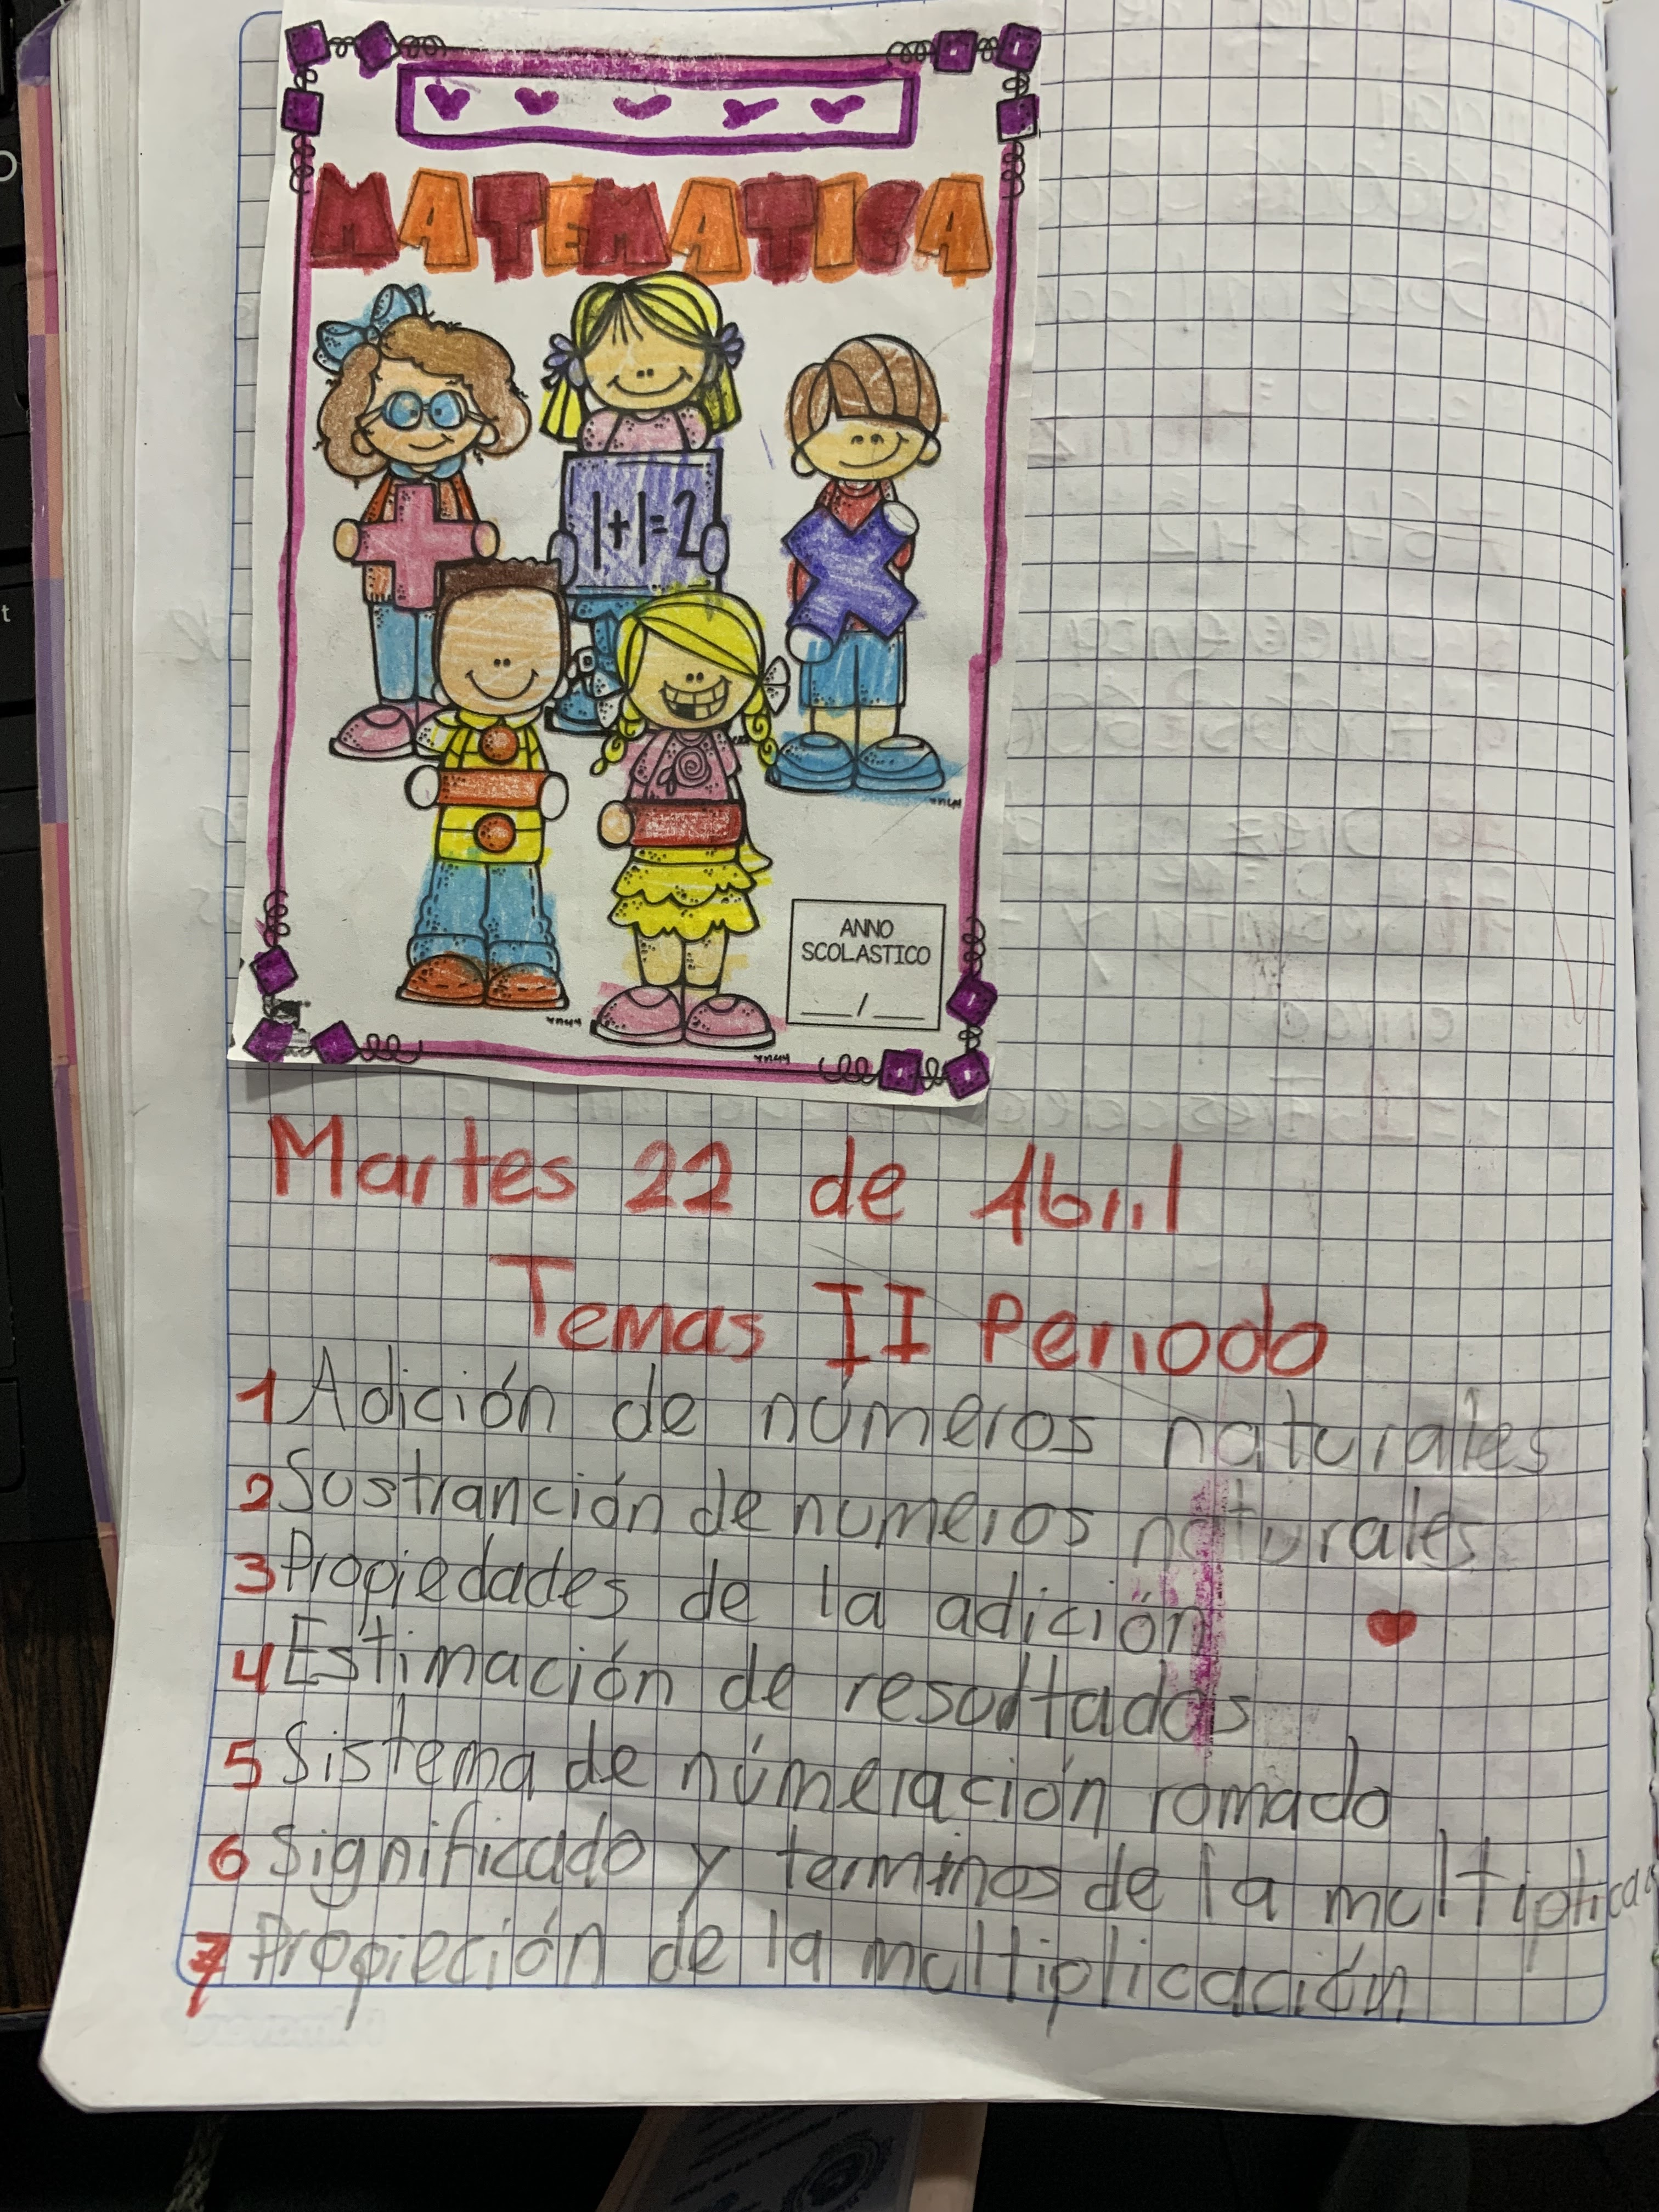 MATEMATICA
1+1=2
ANNO
SCOLASTICO
___/___
Martes 22 de Abril
Temas II Periodo
1 Adición de números naturales
2 Sustranción de numeros naturales
3 Propiedades de la adición
4 Estimación de resultados
5 Sistema de númeración romado
6 Significado y terminos de la
7 Propieción de la multiplicación